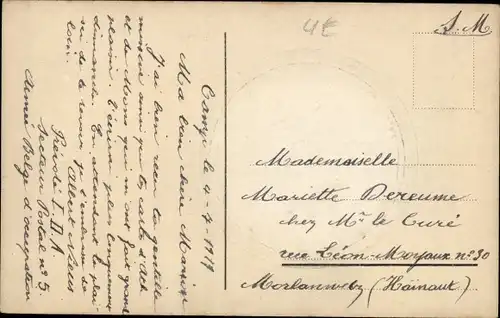 4€
S. M
Camp, le 4-7-1919
Ma bien chère Mariette
J'ai bien reçu ta gentille
missive ainsi que ta carte d'Ath
et de Mons qui m'ont fait grand
plaisir. J'écrirai plus longuement
dimanche. En attendant le plai-
sir de te revoir je t'embrasse de
loin. Albert
Prévôté I D.A
Secteur Postal n° 5.
Armée Belge d'occupation
Mademoiselle
Mariette Dereume
chez Mr le Curé
rue Léon-Moyaux n° 30
Morlanwelz (Hainaut)